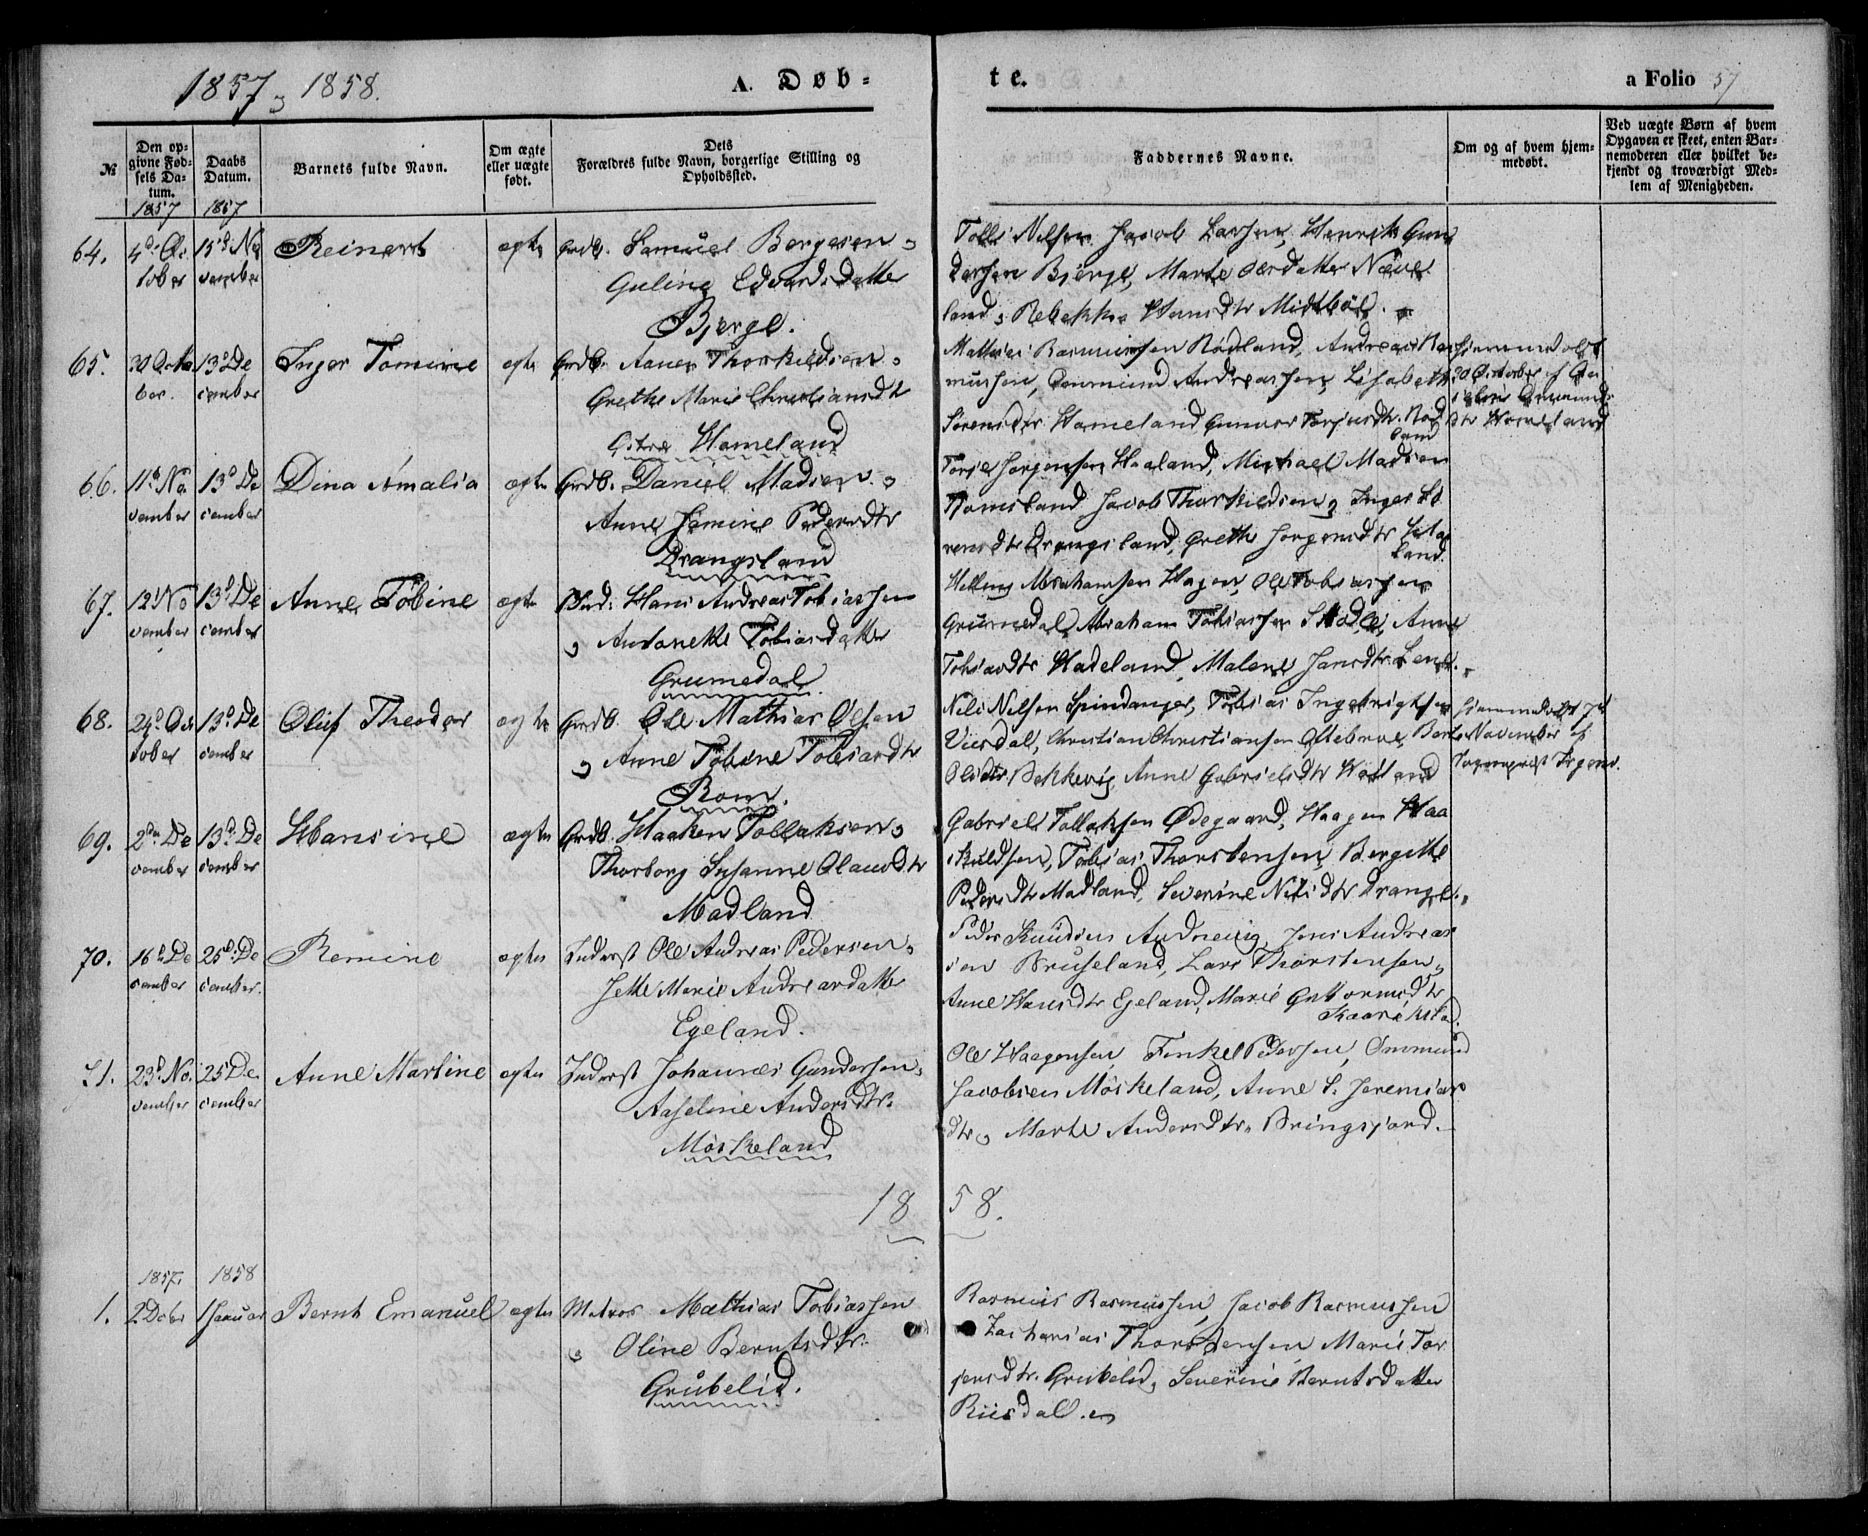 1857 & 1858.
A. Døb-
te.
a Folio 57
№
Den opgivne Fødsels Datum.
Daabs Datum.
Barnets fulde Navn.
Om ægte eller uægte født.
Dets Forældres fulde Navn, borgerlige Stilling og Opholdssted.
Faddernes Navne.
Om og af hvem hjemmedøbt.
Ved uægte Børn af hvem Opgaven er skeet, enten Barnemoderen eller hvilket bekjendt og troværdigt Medlem af Menigheden.
1857 1857
64. 4d Oc 15d No Reinert ægte Grdb. Samuel Børgesen &
tober vember Guline Edvardsdatter
Bjerge.
Tolli Nilsen Jacob Larsen, Henrik Gun
dersen Bjerge, Marte Osedatter Næve
land, Rebekka Hansdtr Midtbøe.
65. 30 Octo 13d De Inger Tomine egte Grdb. Aanen Thorkildsen &
ber. cember Grethe Marie Christiansdtr
Østre Hameland
Mathias Rasmussen Rødland, Andreas Ras
mussen, Ommund Andreassen, Lisabeth
Sørensdtr Hameland Gunvor Torjusdtr. Rød
land
Hjemmedøbt
30 October af
Ommunds
dtr Hameland
66. 11d No 13d De Dina Amalia ægte Grdb. Daniel Madsen &
vember cember Anne Jomine Pedersdtr
Drangsland
Torjer Jørgensen Haaland, Michael Madsen
Romsland Jacob Thorkildsen, Inger Sø
rensdtr Drangsland, Grethe Jørgensdtr Haa
land.
67. 12d No 13d De Anne Tobine ægte Ind: Hans Andreas Tobiassen
vember cember & Antonette Tobiasdatter
Grummedal.
Helling Abrahamsen Hagen, Ole Tobiassen
Grummedal, Abraham Tobiassen Skodle, Anne
Tobiasdtr Hadeland, Malene Jansdtr Lene.
68. 24d Oc 13d De Oluf Theodor ægte Grdb. Ole Mathias Olsen
tober cember & Anne Tobine Tobiasdtr
Rom.
Nils Nilsen Spindanger, Tobias Ingebrigtsen
Viisdal, Christian Christiansen Ollebroe, Berte
Olsdtr Bekkevig, Anne Gabrielsdtr Haaland
Hjemmedøbt 7d
November af
Sogneprest
69. 2den De 13d De Hansine ægte Grdb. Haaken Tollaksen &
cember cember Thorborg Susanne Olausdtr
Madland
Gabriel Tollaksen Ødegaard, Haagen Haa
skuldsen, Tobias Thorstensen, Bergitte
Pedersdtr Madland, Severine Nilsdtr Drangsl.
70. 16d De 25d De Remine ægte Inderst Ole Andreas Pedersen &
cember cember. Jette Marie Andreasdatter
Egeland.
Peder Knudsen Andnevig, Jens Andreas
sen Bruseland, Lars Thorstensen,
Anne Hansdtr Egeland, Marie Guttormsdtr
Kaarikstad.
71. 23d No. 25 De Anne Martine ægte Inderst Johannes Gundersen &
vember cember Aaselene Andersdtr.
Møskeland
Ole Haagensen, Tenkel Pedersen, Ommund
Jacobsen Møskeland, Anne S. Jeremias
dtr & Marte Andersdtr. Bringsjord.
18 58.
1857. 1858
1. 2 Decbr 1 Januar Bernt Emanuel ægte Matros Mathias Tobiassen
& Oline Berntsdtr.
Grubelid.
Rasmus Rasmussen, Jacob Rasmussen
& Zacharias Thorstensen, Marie Tor
jersdtr. Grubelid, Severine Berntsdatter
Riisdal.